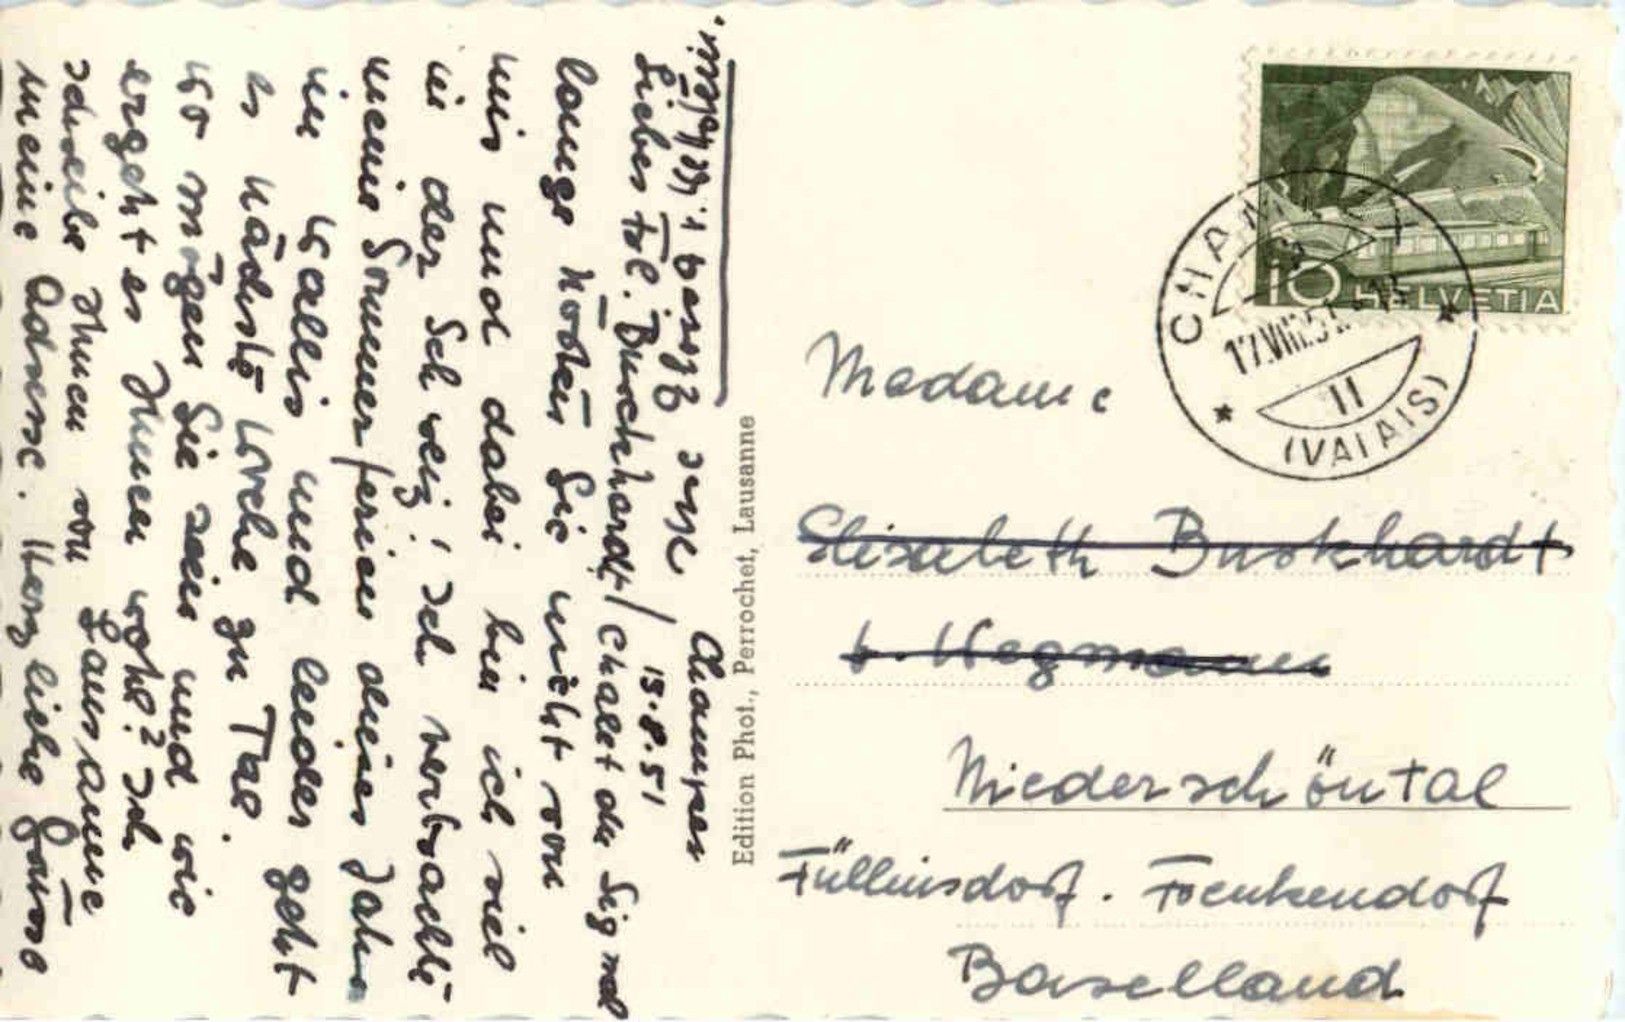 Champex
13.8.51
Liebes Frl. Burckhardt / Chalet du Signal
lange hörten Sie nicht von
mir und dabei bin ich viel
in der Schweiz! Ich verbrachte
meine Sommerferien dieses Jahr
im Wallis und leider geht
es nächste Woche zu Tal.
Wo mögen Sie sein und wie
ergeht es Ihnen wohl? Ich
schreibe Ihnen von Lausanne
meine Adresse. Herzliche Grüsse
Edition Phot., Perrochet, Lausanne
10 HELVETIA
CHAMPEX
17.VIII.51
II
(VALAIS)
Madame
Elisabeth Burckhardt
b. Wegmann
Niederschöntal
Füllinsdorf. Frenkendorf
Baselland